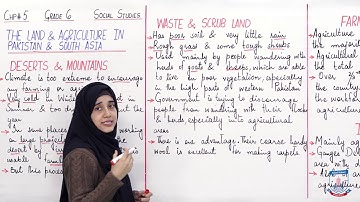 Chp# 5 Grade 6 Social Studies
THE LAND & AGRICULTURE IN
PAKISTAN & SOUTH ASIA
DESERTS & MOUNTAINS
Climate is too extreme to encourage
any farming or
Very cold in Winter
Summer & too d
the year
In some places
working
on large projects
desert by
waste
fam
But this proces
WASTE & SCRUB LAND
Has poor soil & very little rain
Rough grass & some tough shrubs
Used mainly by people wandering with their
herds of goats & sheeps, which are able
to live on poor vegetation, especially in
the high parts of western Pakistan
Government is trying to discourage
people from wandering with their flocks
& herds especially into agricultural
areas
There is one advantage. Their coarse hardy
wool is excellent for making carpets
FAR
Agriculture
the majori
Agricultural
of the total
Over
the country
the workfo
agriculture
Mainly ag
Ganges De
area with d
Also
agricultur